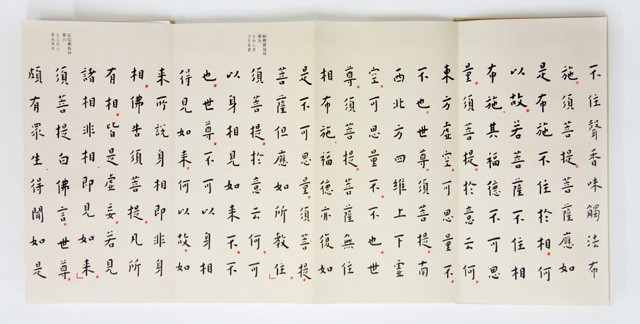 不住聲香味觸法布
施須菩提菩薩應如
是布施不住於相何
以故若菩薩不住相
布施其福德不可思
量須菩提於意云何
東方虛空可思量不
不也世尊須菩提南
西北方四維上下虛
空可思量不不也世
尊須菩提菩薩無住
相布施福德亦復如
是不可思量須菩提
菩薩但應如所教住
如理實見分
第五
須菩提於意云何可
以身相見如來不不
也世尊不可以身相
得見如來何以故如
來所說身相即非身
相佛告須菩提凡所
有相皆是虛妄若見
諸相非相即見如來
正信希有分
第六
須菩提白佛言世尊
頗有眾生得聞如是